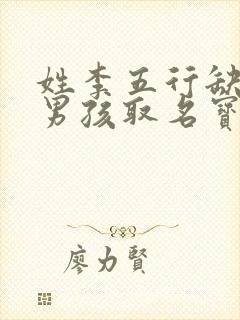 姓李五行缺
男孩取名寶
廖力賢